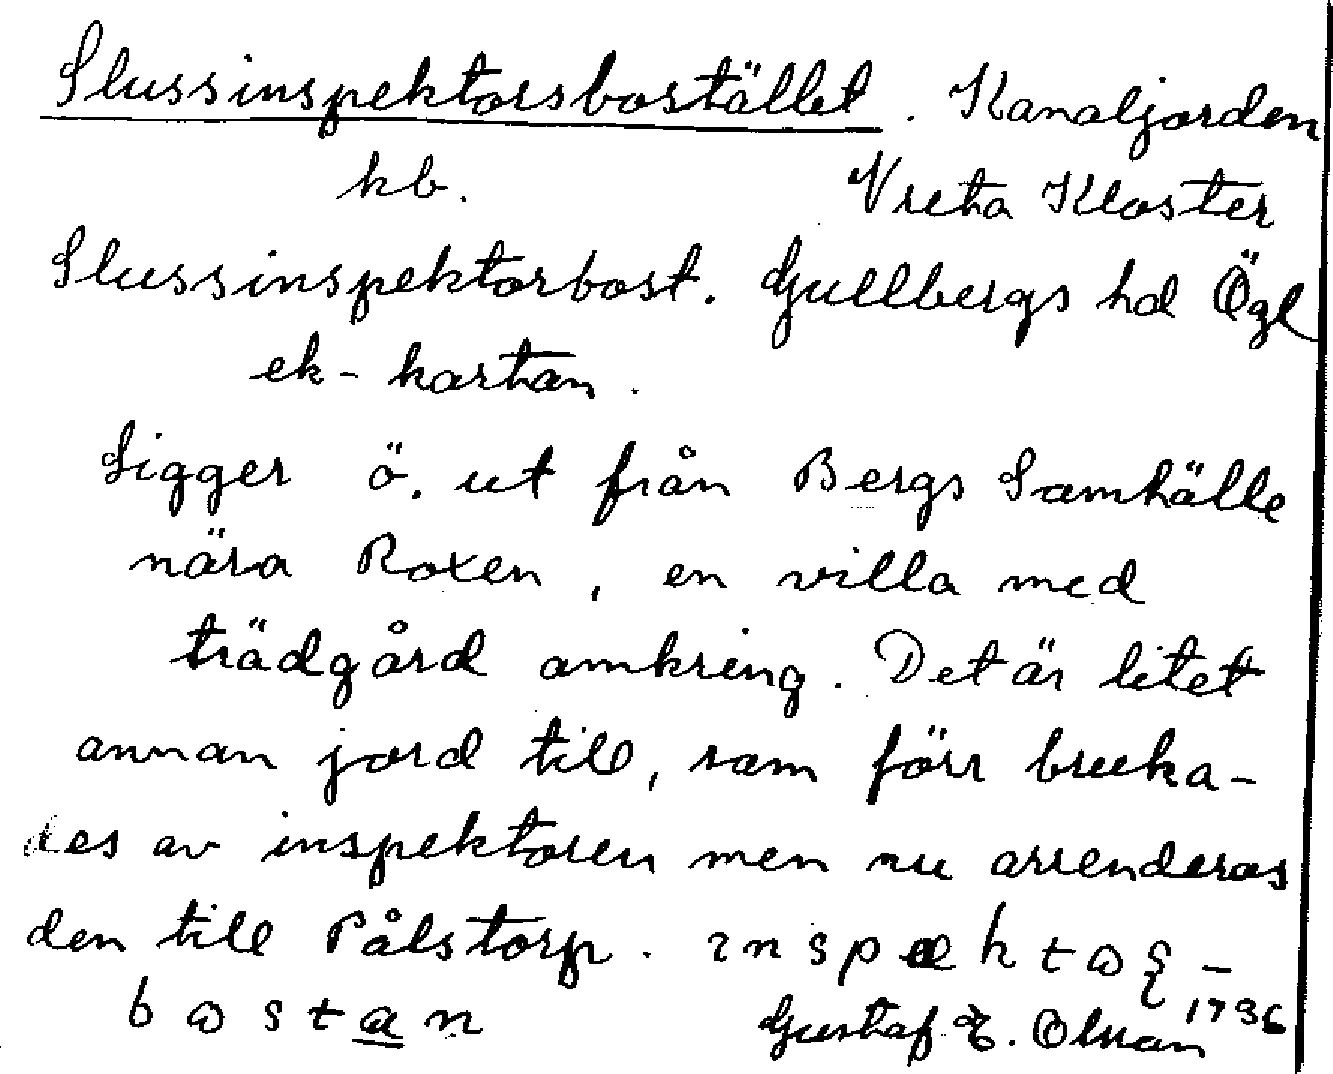 Slussinspektorsbostället. Kanaljorden
kb. Vreta Kloster
Slussinspektorbost. Gullbergs hd Ögl
ek-kartan.
Ligger ö. ut från Bergs Samhälle
nära Roxen, en villa med
trädgård omkring. Det är litet
annan jord till, som förr bruka-
des av inspektoren men nu arrenderas
den till Pålstorp. ɿnspæktɷꞩ-
bɷstan Gustaf E. Olsson 1736